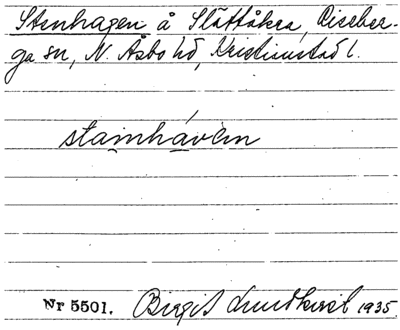 Stenhagen å Slättåkra, Riseber-
ga sn, N. Åsbo hd, Kristianstad l.
stainháven
Nr 5501. Birgit Lundkvist 1935